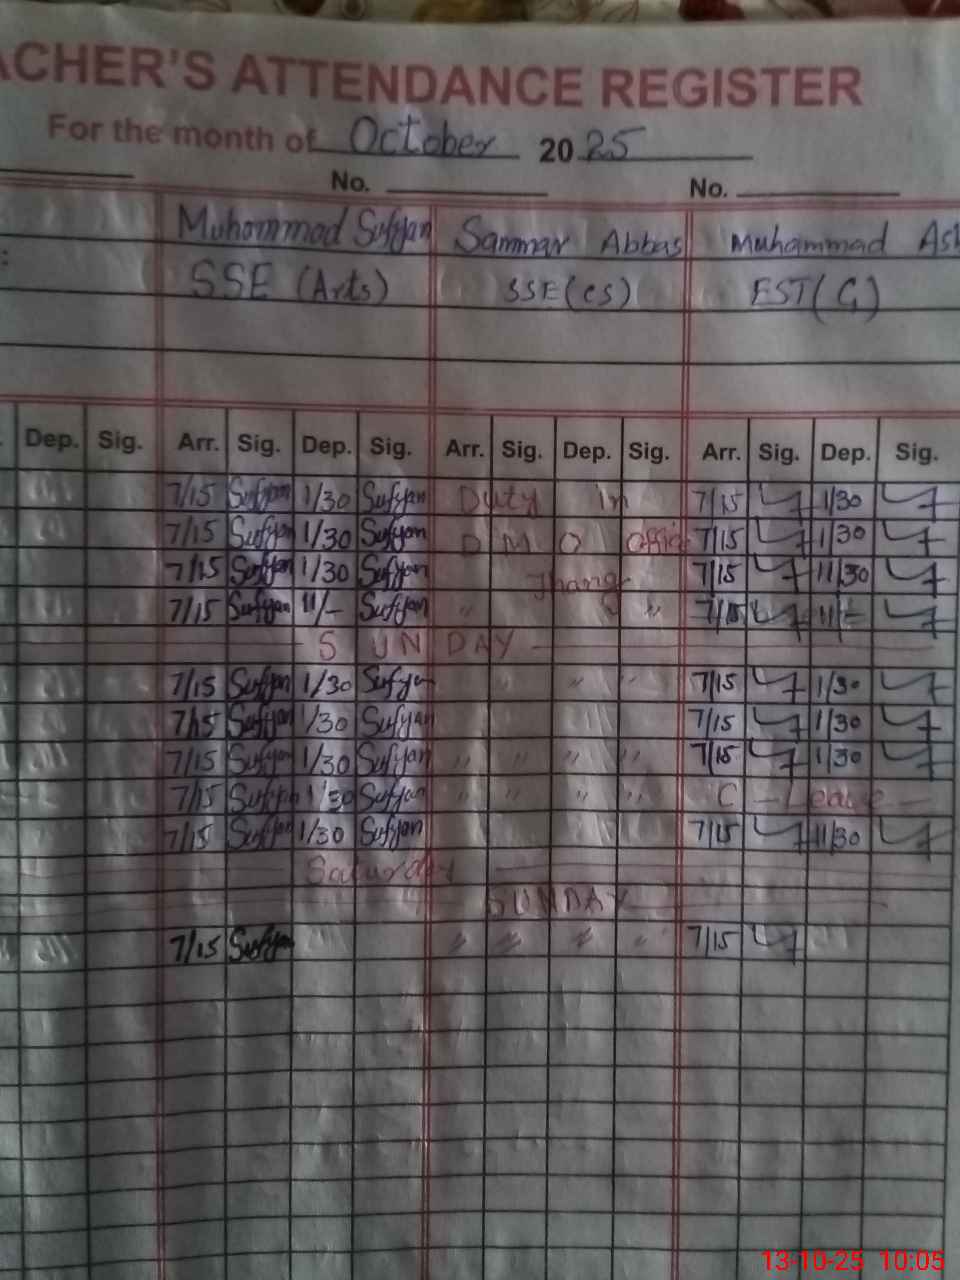 ACHER'S ATTENDANCE REGISTER
For the month of October 2025
No. No.
Muhammad Sufyan Sammar Abbas Muhammad Ash
: SSE (Arts) SSE (CS) EST (G)
Dep. Sig. Arr. Sig. Dep. Sig. Arr. Sig. Dep. Sig. Arr. Sig. Dep. Sig.
7/15 Sufyan 1/30 Sufyan Duty in 7/15 1/30
7/15 Sufyan 1/30 Sufyan DMO Office 7/15 1/30
7/15 Sufyan 1/30 Sufyan Jhang 7/15 11/30
7/15 Sufyan 11/- Sufyan " " " 7/15 11/-
SUNDAY
7/15 Sufyan 1/30 Sufyan " " 7/15 1/30
7/15 Sufyan 1/30 Sufyan 7/15 1/30
7/15 Sufyan 1/30 Sufyan " " " " 7/15 1/30
7/15 Sufyan 1/30 Sufyan " " " " C - Leave -
7/15 Sufyan 1/30 Sufyan 7/15 11/30
Saturday
SUNDAY
7/15 Sufyan " " " " 7/15
13-10-25 10:05